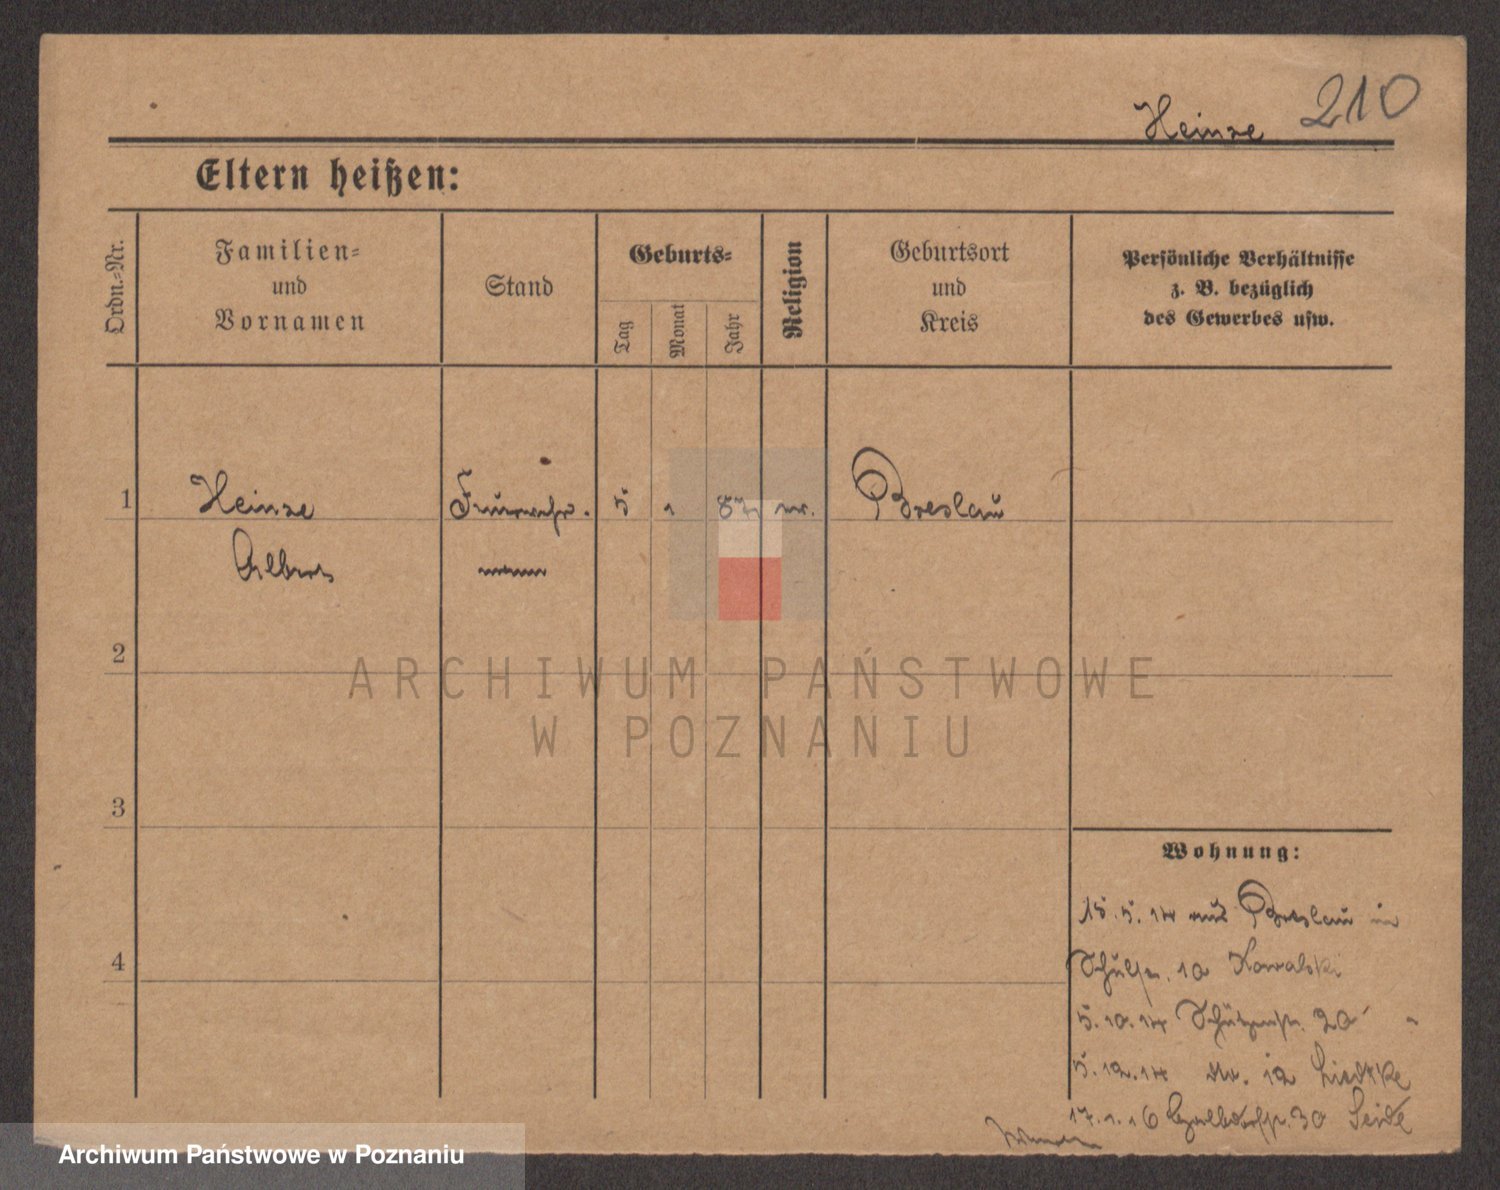 Heinze 210
Eltern heißen:
Ordn.-Nr.
Familien-
und
Vornamen
Stand
Geburts-
Tag
Monat
Jahr
Religion
Geburtsort
und
Kreis
Persönliche Verhältnisse
z. B. bezüglich
des Gewerbes usw.
1 Heinze Feuerwehr- 5 1 ev. Breslau
Albert mann
2
3
4
ARCHIWUM PAŃSTWOWE
W POZNANIU
Wohnung:
15.5.14 aus Breslau in
10 Kowalski
5.10.14 Schützenstr. 20
5.12.14 do. 12 Liedtke
17.1.16 30 Seide
Archiwum Państwowe w Poznaniu